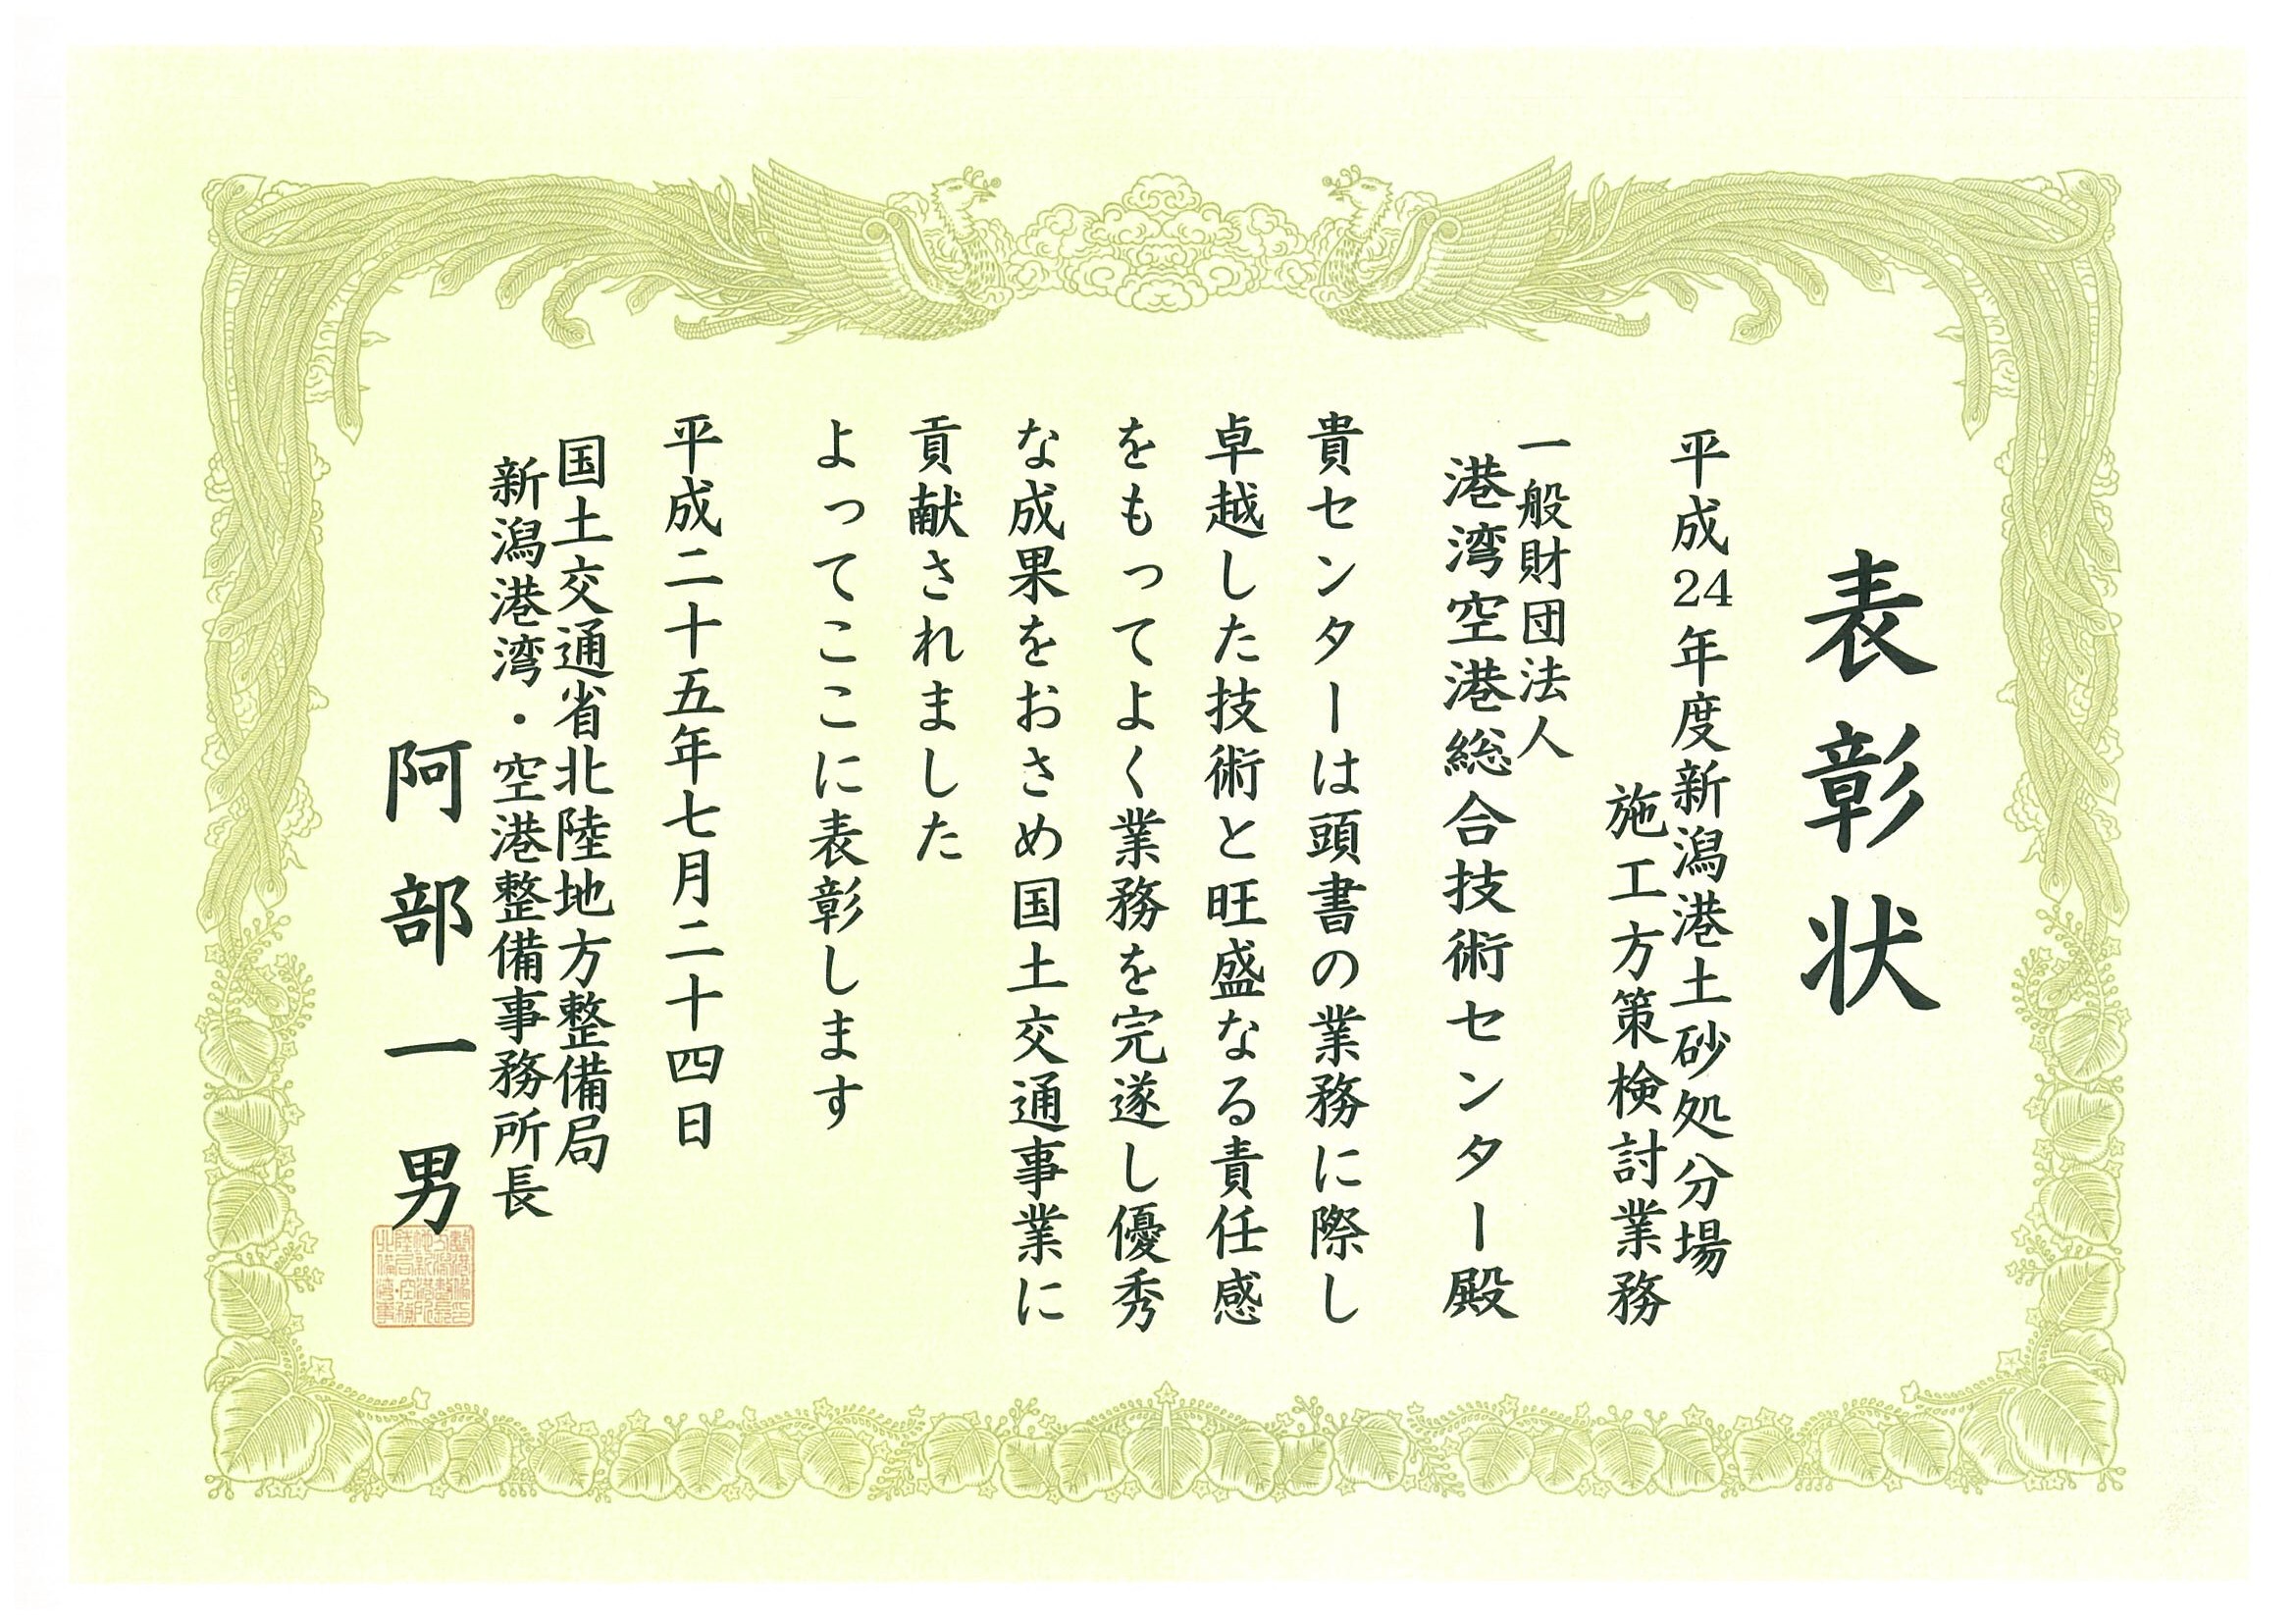 表彰状
平成24年度新潟港土砂処分場
施工方策検討業務
一般財団法人
港湾空港総合技術センター殿
貴センターは頭書の業務に際し
卓越した技術と旺盛なる責任感
をもってよく業務を完遂し優秀
な成果をおさめ国土交通事業に
貢献されました
よってここに表彰します
平成二十五年七月二十四日
国土交通省北陸地方整備局
新潟港湾・空港整備事務所長
阿部一男